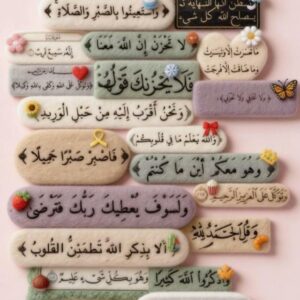 وَاسْتَعِينُوا بِالصَّبْرِ وَالصَّلَاةِ
لَا تَحْزَنْ إِنَّ اللَّهَ مَعَنَا
فَلَا يَحْزُنْكَ قَوْلُهُمْ
وَنَحْنُ أَقْرَبُ إِلَيْهِ مِنْ حَبْلِ الْوَرِيدِ
وَاللَّهُ يَعْلَمُ مَا فِي قُلُوبِكُمْ
فَاصْبِرْ صَبْرًا جَمِيلًا
وَهُوَ مَعَكُمْ أَيْنَ مَا كُنْتُمْ
وَلَسَوْفَ يُعْطِيكَ رَبُّكَ فَتَرْضَىٰ
وَتَوَكَّلْ عَلَى الْعَزِيزِ الرَّحِيمِ
وَقُلِ الْحَمْدُ لِلَّهِ
أَلَا بِذِكْرِ اللَّهِ تَطْمَئِنُّ الْقُلُوبُ
وَهُوَ بِكُلِّ شَيْءٍ عَلِيمٌ
وَاذْكُرُوا اللَّهَ كَثِيرًا